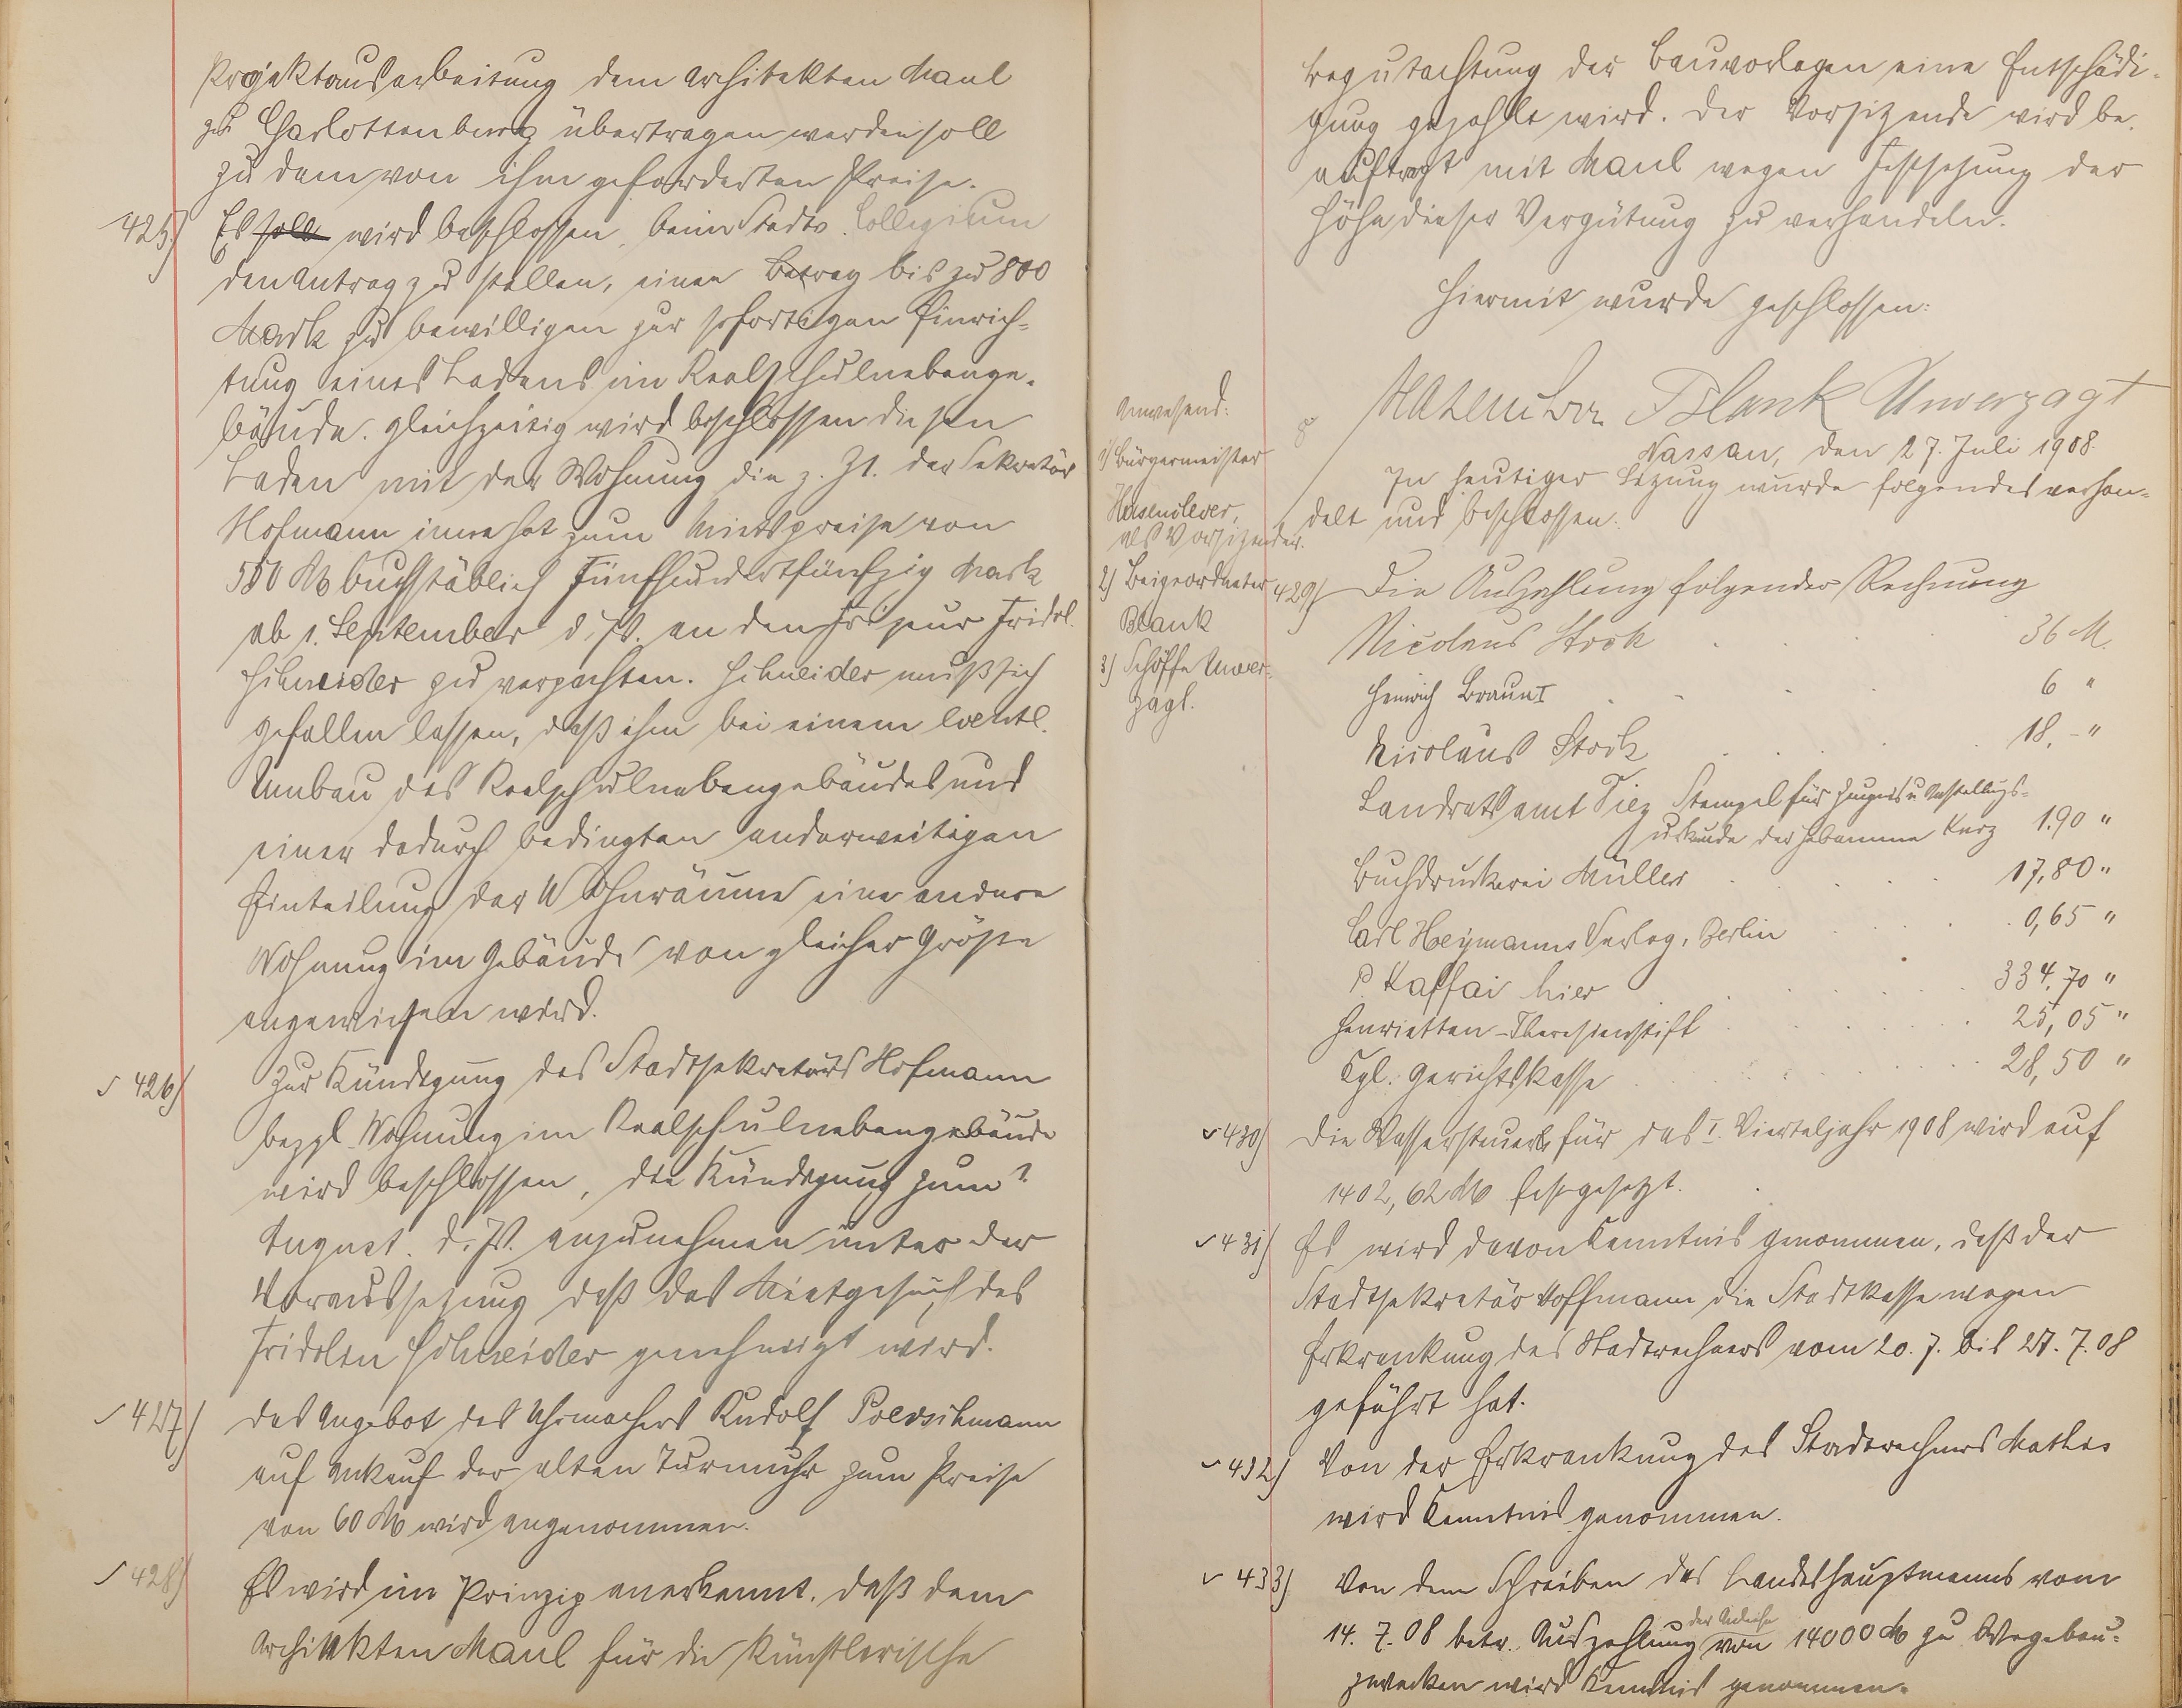 Projektausarbeitung dem Architekten Maul
zu Charlottenburg übertragen werden soll
zu dem von ihm geforderten Preise.
425) Es soll wird beschlossen, beim Stadtv. Collegium
den Antrag zu stellen, einen Betrag bis zu 800
Mark zu bewilligen zur sofortigen Einrich-
tung eines Ladens im Realschulnebenge-
bäude. Gleichzeitig wird beschlossen diesen
Laden mit der Wohnung die z. Zt. der Sekretär
Hofmann inne hat zum Mietspreise von
550 M buchstäblich Fünfhundertfünfzig Mark
ab 1. September d. Js. an den Friseur Fridol.
Schneider zu verpachten. Schneider muß sich
gefallen lassen, daß ihm bei einem eventl.
Umbau des Realschulnebengebäudes und
einer dadurch bedingten anderweitigen
Einteilung der Wohnräume eine andere
Wohnung im Gebäude von gleicher Größe
angewiesen wird.
426) Zur Kündigung des Stadtsekretärs Hofmann
bezgl. Wohnung im Realschulnebengebäude
wird beschlossen, die Kündigung zum 1.
August d. Js. anzunehmen unter der
Voraussetzung daß das Mietgesuch des
Fridolin Schneider genehmigt wird.
427) Das Angebot des Uhrmachers Rudolf Poerschmann
auf Ankauf der alten Turmuhr zum Preise
von 60 M wird angenommen.
428) Es wird im Prinzip anerkannt, daß dem
Architekten Maul für die künstlerische
Begutachtung der Bauvorlagen eine Entschädi-
gung gezahlt wird. Der Vorsitzende wird be-
auftragt mit Maul wegen Festsetzung der
Höhe dieser Vergütung zu verhandeln.
Hiermit wurde geschlossen:
Hasenclever Blank Unverzagt
Anwesend:
1) Bürgermeister
Hasenclever,
als Vorsitzender.
2) Beigeordneter
Blank
3) Schöffe Unver-
zagt.
Nassau, den 27. Juli 1908.
In heutiger Sitzung wurde folgendes verhan-
delt und beschlossen.
429) Die Auszahlung folgender Rechnung
Nicolaus Stork 36 M.
Heinrich Braun I 6 "
Nicolaus Stork 18,- "
Landratsamt Diez Stempel für Zeugnis u. Anstellungs-
urkunde der Hebamme Kurz 1.90 "
Buchdruckerei Müller 17,80 "
Carl Heymanns Verlag, Berlin 0,65 "
P Kaffai hier 334,70 "
Henrietten-Theresienstift 25,05 "
Kgl. Gerichtskasse 28,50 "
430) Die Wassersteuer für das I. Vierteljahr 1908 wird auf
1402,62 M festgesetzt.
431) Es wird davon Kenntnis genommen, daß der
Stadtsekretär Hoffmann die Stadtkasse wegen
Erkrankung des Stadtrechners vom 20.7. bis 27.7.08
geführt hat.
432) Von der Erkrankung des Stadtrechners Mathes
wird Kenntnis genommen.
433) Von dem Schreiben des Landeshauptmanns vom
der Anleihe
14.7.08 betr. Auszahlung von 14000 M zu Wegebau-
zwecken wird Kenntnis genommen.